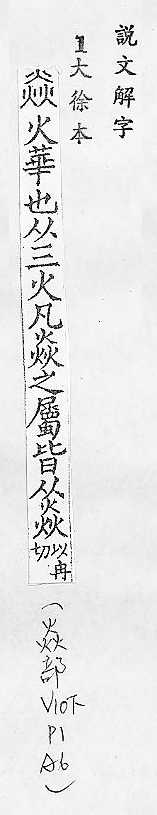 說文解字
1大徐本
焱火華也从三火凡焱之屬皆从焱以冉切
(焱部 V10下 P1 A6)